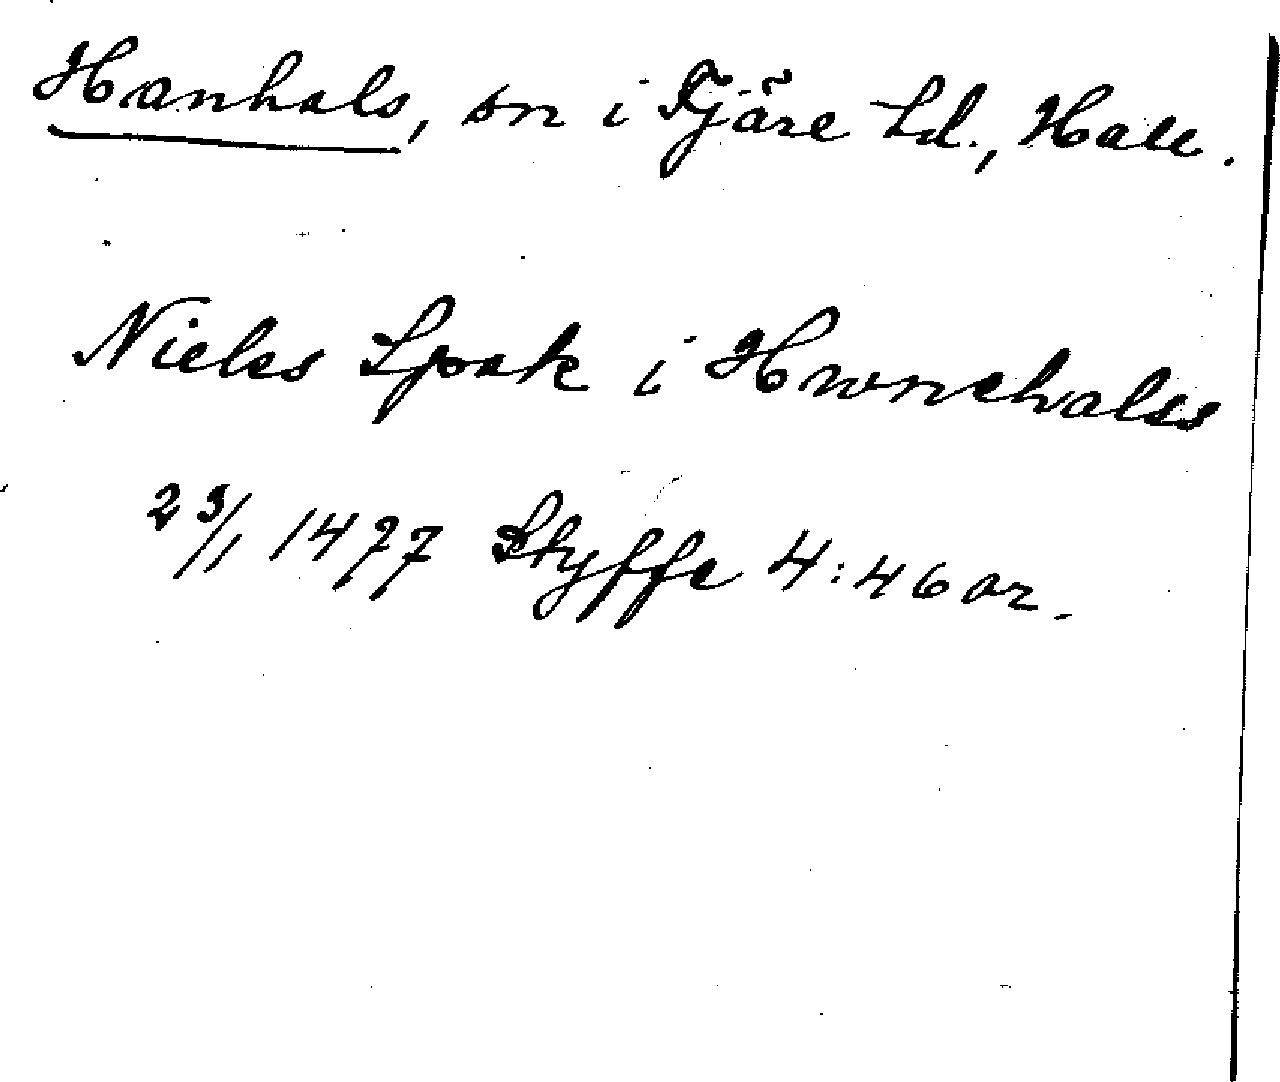 Hanhals, sn i Fjäre hd., Hall.
Niels Spak i Hwnehalss
23/1 1477 Styffe 4:46 or.